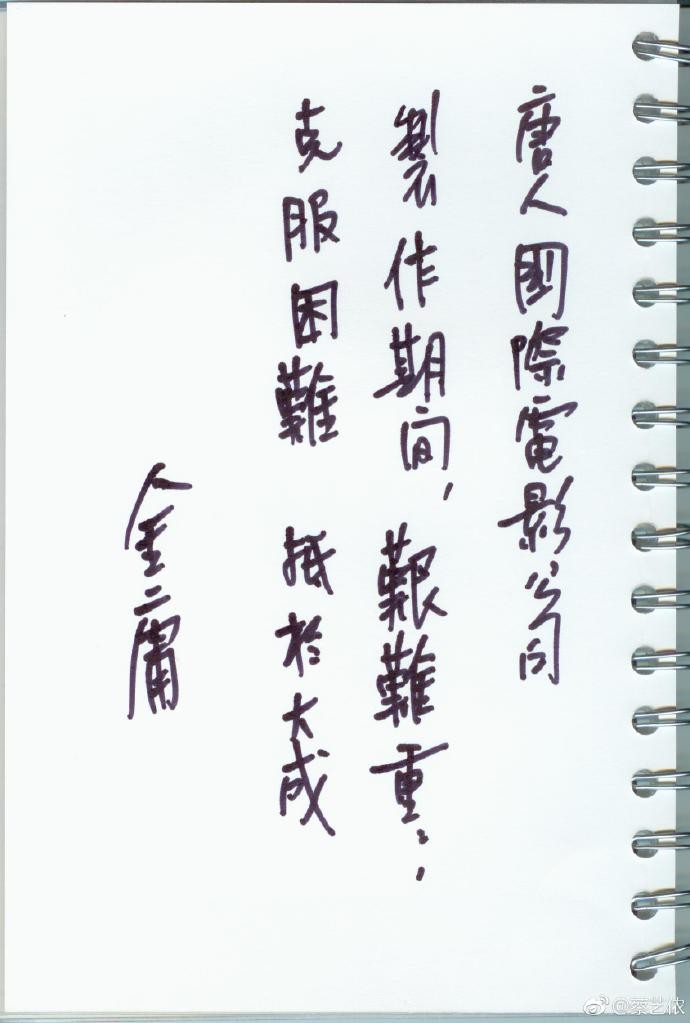 唐人國際電影公司
製作期间，艱難重重，
克服困難 抵於大成
金庸
@蔡艺侬